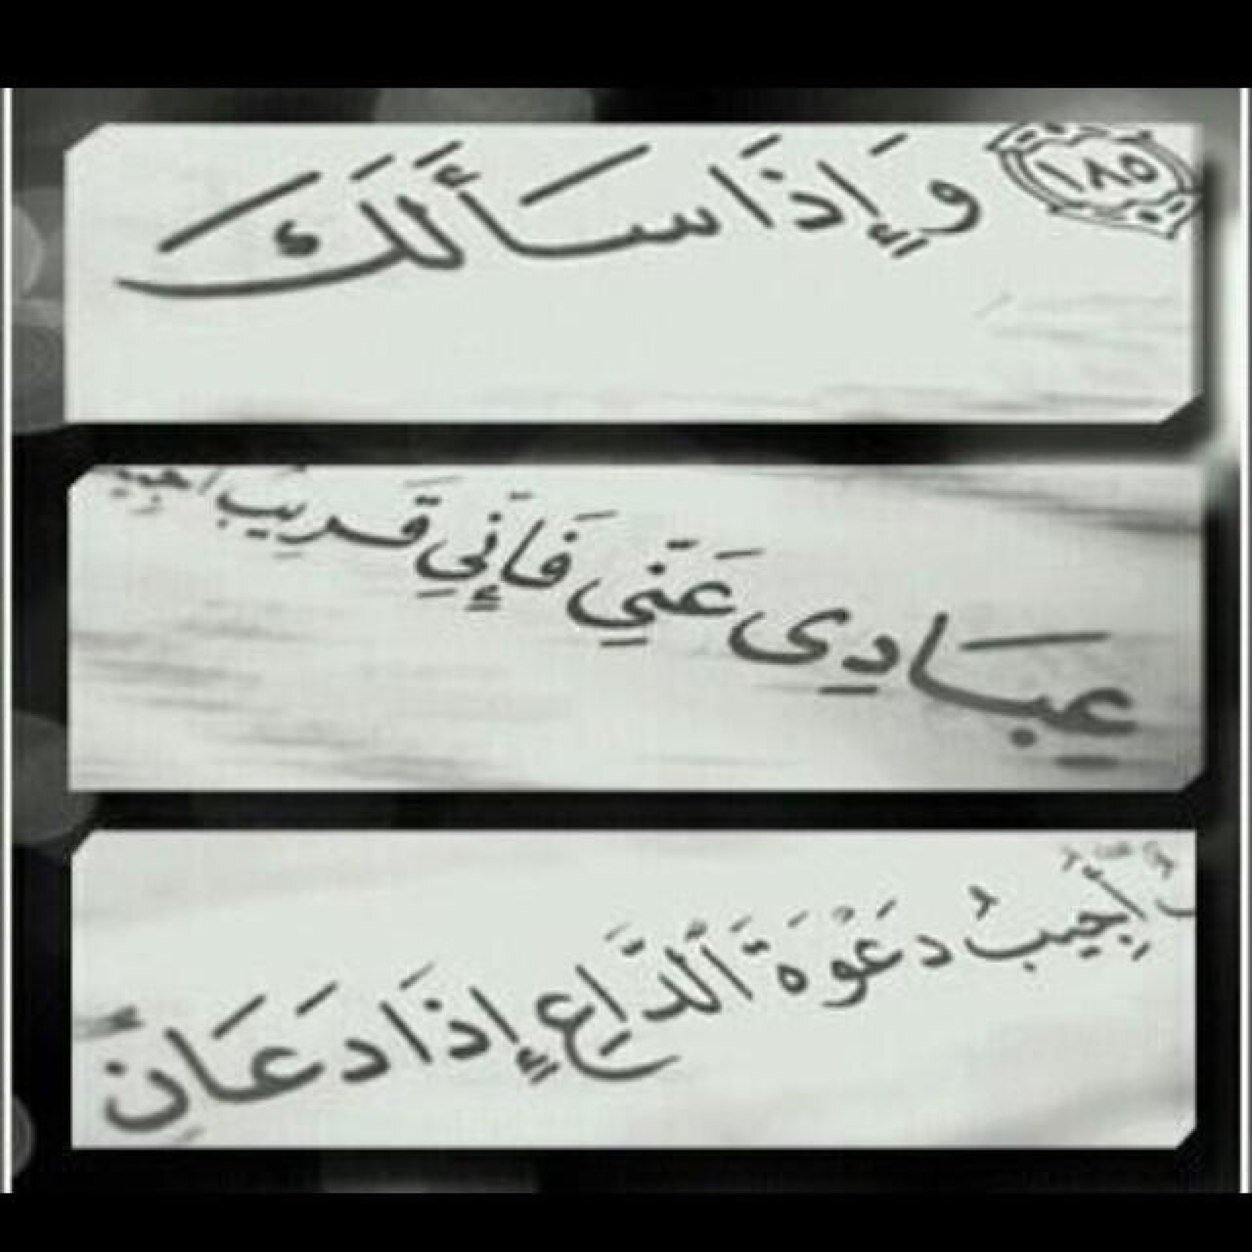 ١٨٥ وَإِذَا سَأَلَكَ
عِبَادِى عَنِّي فَإِنِّي قَرِيبٌ
أُجِيبُ دَعْوَةَ ٱلدَّاعِ إِذَا دَعَانِ